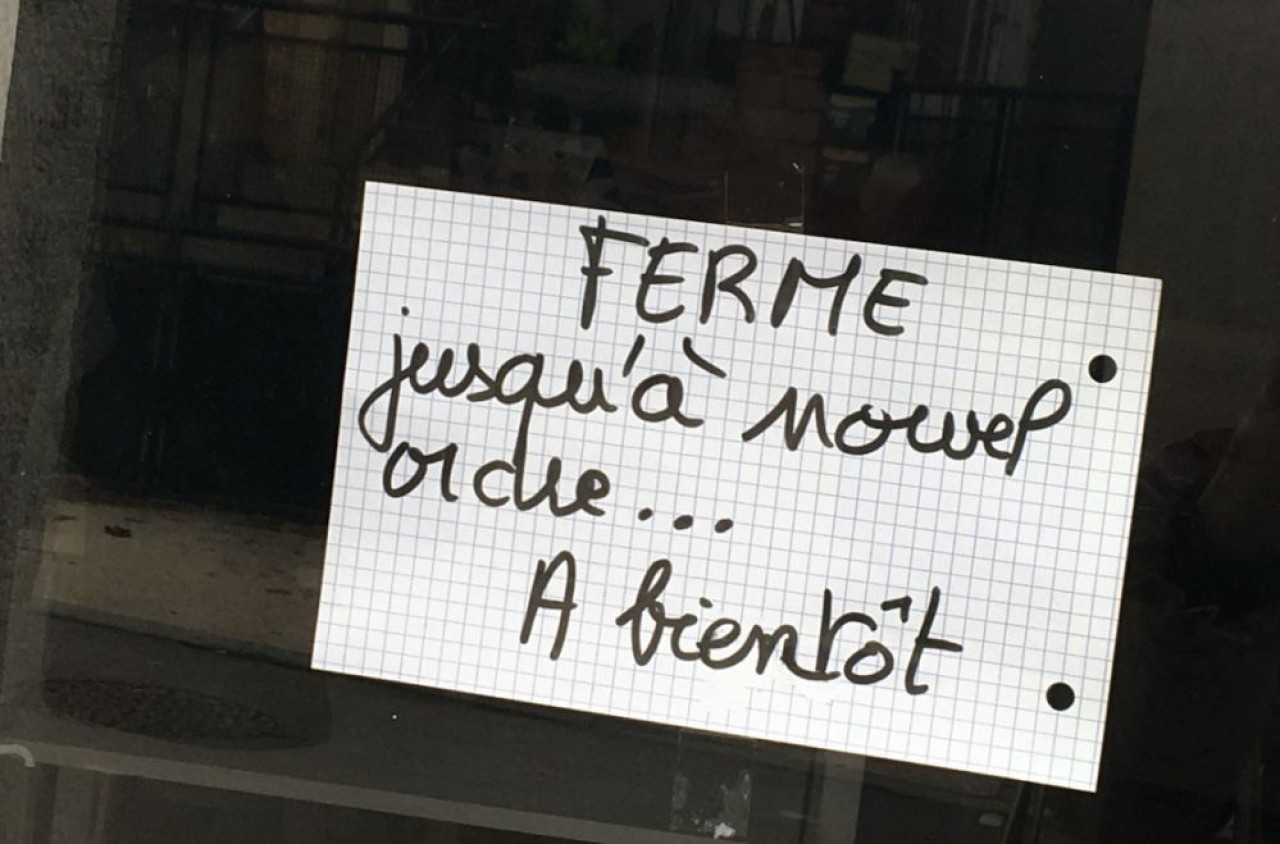 FERME
jusqu'à nouvel
ordre...
A bientôt